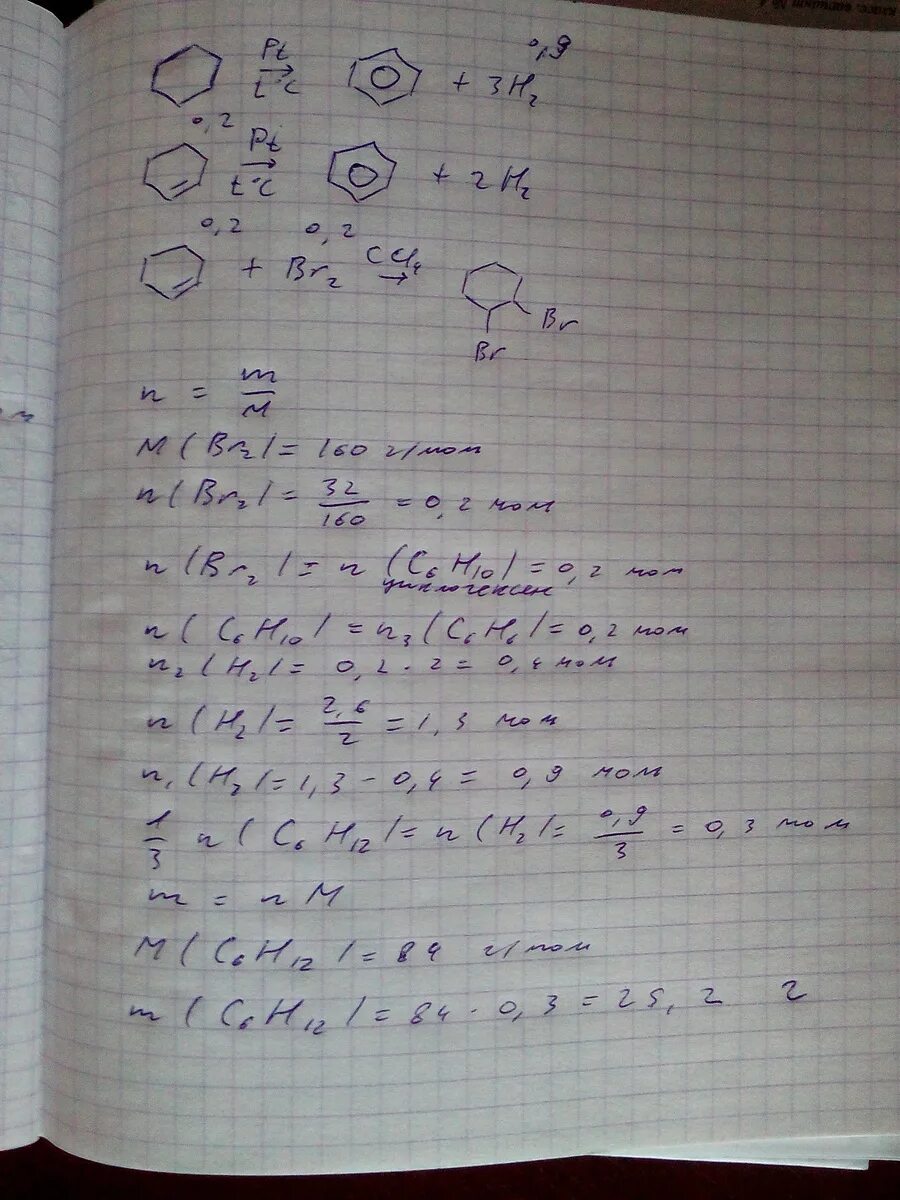 0,9
Pt
t°C
+ 3H₂
0,2
Pt
t°C
+ 2H₂
0,2 0,2
+ Br₂ CCl₄ →
Br
Br
n = m/M
M(Br₂) = 160 г/моль
n(Br₂) = 32/160 = 0,2 моль
n(Br₂) = n(C₆H₁₀) = 0,2 моль
циклогексен
n(C₆H₁₀) = n₃(C₆H₆) = 0,2 моль
n₂(H₂) = 0,2 · 2 = 0,4 моль
n(H₂) = 2,6/2 = 1,3 моль
n₁(H₂) = 1,3 - 0,4 = 0,9 моль
1/3 n(C₆H₁₂) = n(H₂) = 0,9/3 = 0,3 моль
m = n M
M(C₆H₁₂) = 84 г/моль
m(C₆H₁₂) = 84 · 0,3 = 25,2 г